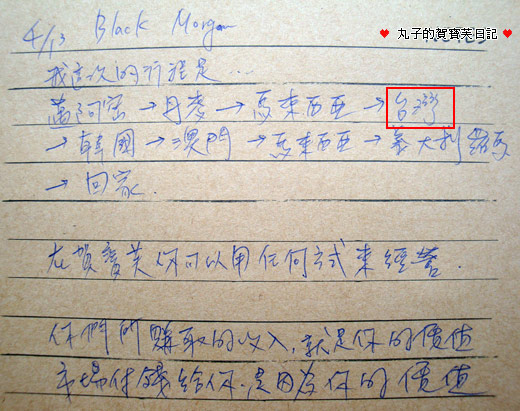 ♥ 丸子的賀寶芙日記 ♥
4/13 Black Morgan
我這次的行程是…
邁阿密→丹麥→馬來西亞→台灣
→韓國→澳門→馬來西亞→義大利 羅馬
→回家.
在賀寶芙你可以用任何方式來經營.
你們所賺取的收入,就是你的價值
市場付錢給你,是因為你的價值